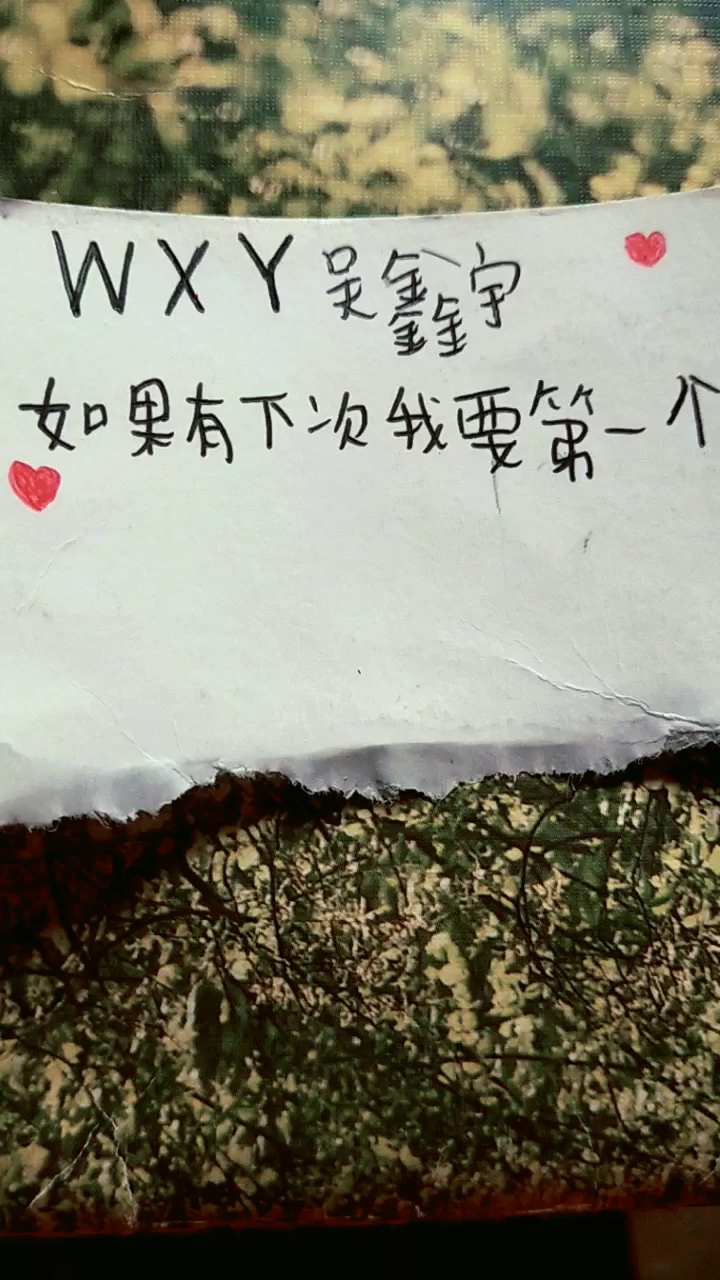 WXY吴鑫宇
如果有下次我要第一个